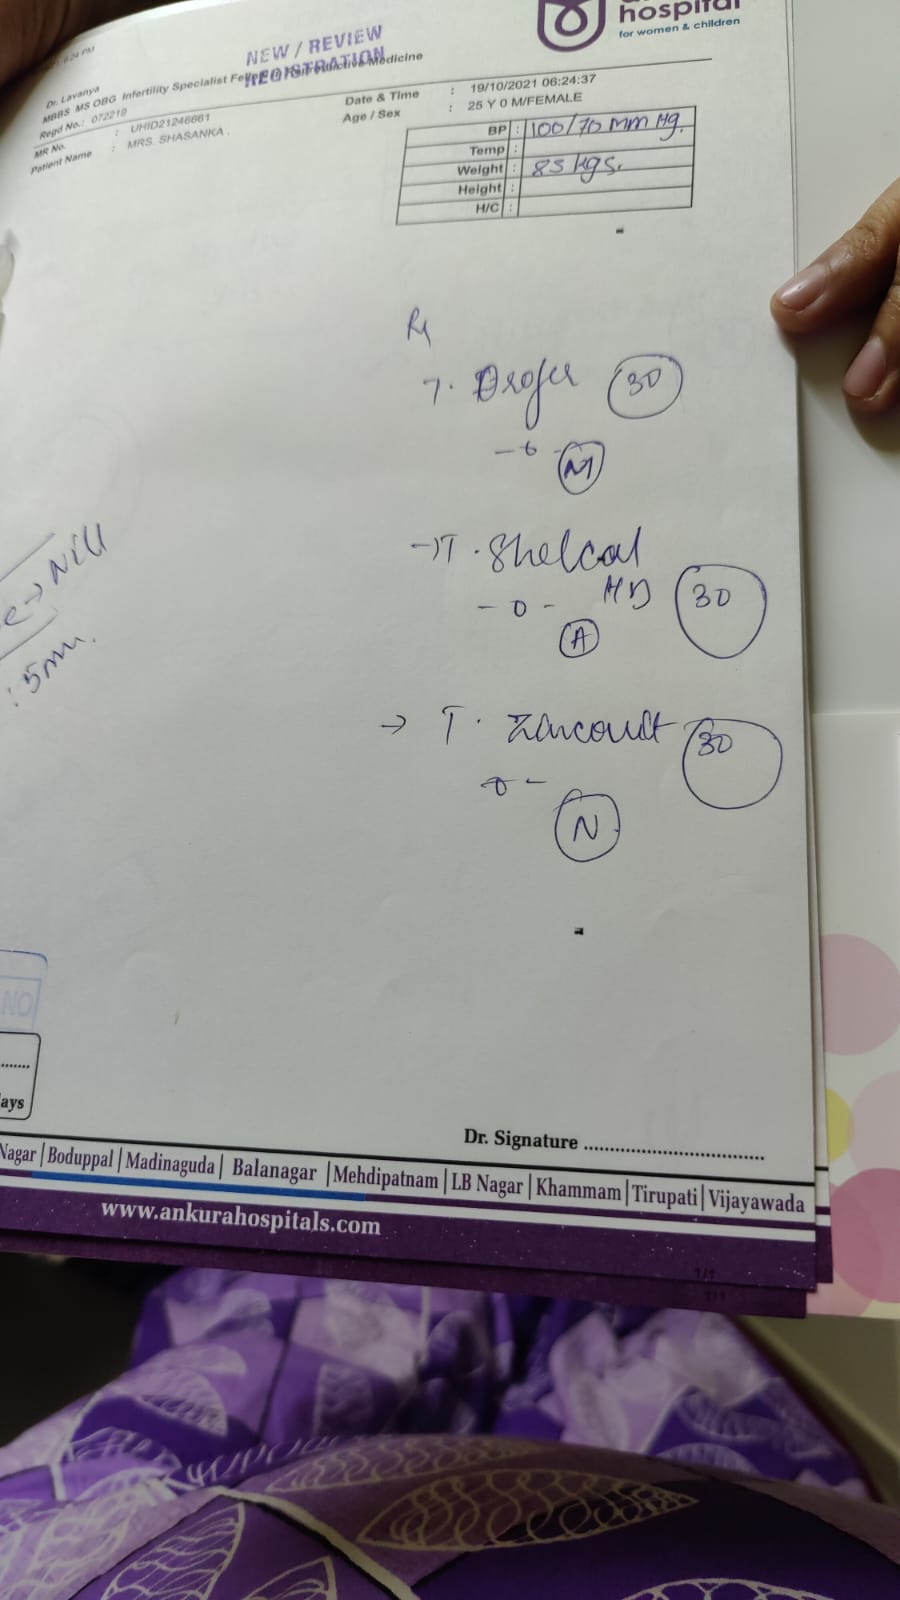 hospital
for women & children
6:24 PM
NEW / REVIEW
REGISTRATION
Dr. Lavanya
MBBS MS OBG Infertility Specialist Medicine
Regd No.: 072219
MR No. : UHID21246661
Patient Name : MRS. SHASANKA .
Date & Time : 19/10/2021 06:24:37
Age / Sex : 25 Y 0 M/FEMALE
BP : 100/70 mm Hg.
Temp :
Weight : 83 kgs.
Height :
H/C :
Rx
T. 30
M
→ T. Shelcal
HD 30
- 0 -
A
→ T. 30
N
→ Nill
: 5mm.
NO
ays
Dr. Signature
Nagar | Boduppal | Madinaguda | Balanagar | Mehdipatnam | LB Nagar | Khammam | Tirupati | Vijayawada
www.ankurahospitals.com
1/1
1/1